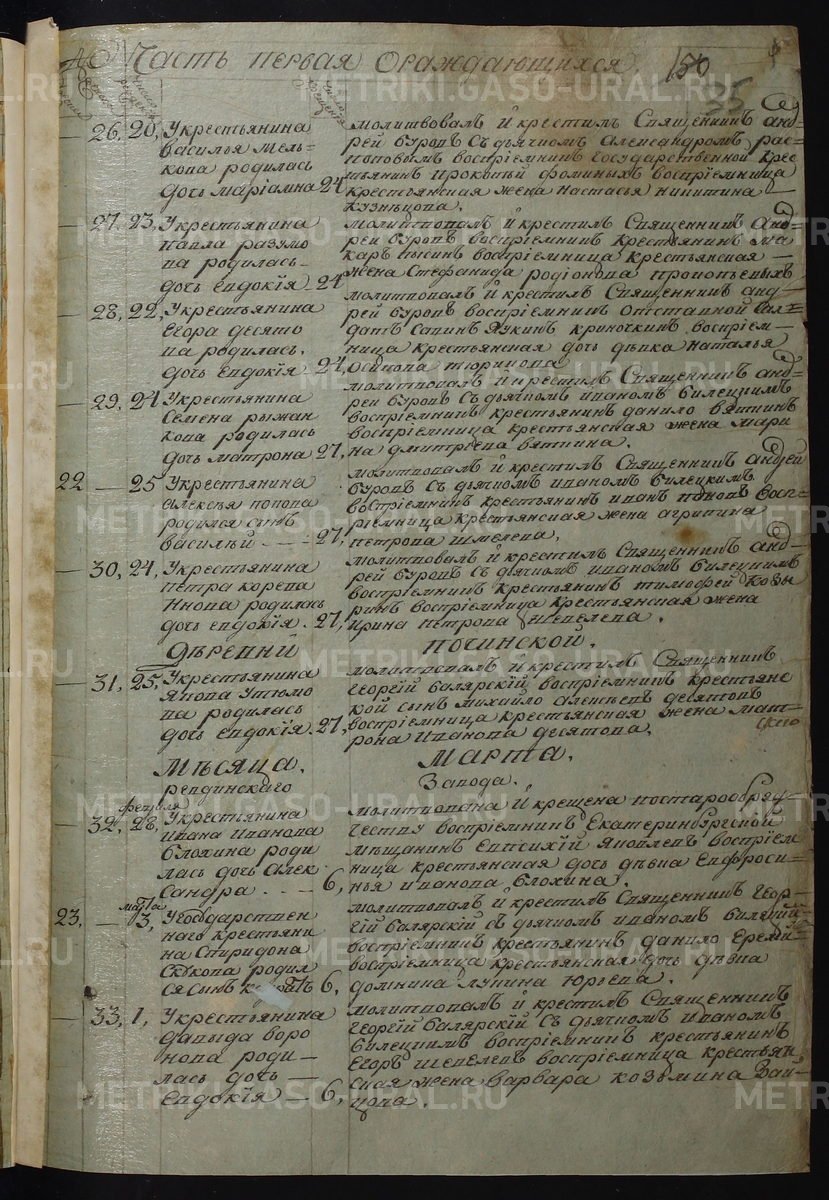 Часть первая Ораждающихся. 150
35
26, 20, Укрестьянина
василья мель-
кова родилась
дочь мариамна 24,
молитвовалъ и крестилъ Священникъ анд-
рей буровъ Съ дьячкомъ александромъ рас-
поповымъ воспріемникъ государственной крес
тьянинъ прокопьй фоминыхъ воспріемница
крестьянская жена настасья никитина
кузнѣцова.
27, 23, Укрестьянина
павла разумо
ва родилась
дочь евдокія 24
молитвовалъ и крестилъ Священникъ анд-
рей буровъ воспріемникъ крестьянинъ ма
каръ лысинъ воспріемница крестьянская
жена Стефанида родіонова прокопьевыхъ
28, 22, Укрестьянина
егора десято
ва родилась.
дочь евдокія 24,
молитвовалъ и крестилъ Священникъ анд-
рей буровъ воспріемникъ отставной сал-
датъ савинъ криночкинъ воспріем-
ница крестьянская дочь дѣвка наталья
осипова тюрикова
29, 24 Укрестьянина
Семена рыжан
кова родилась
дочь матрона 27,
молитвовалъ и крестилъ Священникъ анд-
рей буровъ Съ дьячкомъ иваномъ билецкимъ
воспріемникъ крестьянинъ данило вяткинъ
воспріемница крестьянская жена мари
на дмитріева вяткина.
22 — 25 Укрестьянина
алексѣя попова
родился сынъ
василій — 27,
молитвовалъ и крестилъ Священникъ андрей
буровъ Съ дьячкомъ иваномъ билецкимъ
воспріемникъ крестьянинъ иванъ поповъ восп-
ріемница крестьянская жена агрипина
петрова шмелева,
30, 24, Укрестьянина
петра корева
нкова родилась
дочь евдокія. 27,
молитвовалъ и крестилъ Священникъ анд-
рей буровъ Съ дьячкомъ иваномъ билецкимъ
воспріемникъ крестьянинъ тимофей козы
ринъ воспріемница крестьянская жена
ирина петрова щепелева.
Дѣревни починской.
31, 25, Укрестьянина
якова утюмо
ва родилась
дочь евдокія. 27,
молитвовалъ и крестилъ Священникъ
георгій балярскій воспріемникъ крестьянс
кой сынъ михайло алексѣевъ десятовъ
воспріемница крестьянская жена мат-
рона иванова десятова.
Мѣсяца. Марта.
ревдинскаго Завода.
февраля
32, 28, Укрестьянина
ивана иванова
блохина роди
лась дочь алек
сандра. — 6,
молитвована и крещена постарообряд-
честву воспріемникъ Екатеринбургской
мѣщанинъ Евпсихій яковлевъ воспріем
ница крестьянская дочь дѣвка Евфроси-
нья иванова блохина.
марта
23, — 3, Угосударствен
наго крестьяни
на Спиридона
родил
ся сынъ 6,
молитвовалъ и крестилъ Священникъ геор-
гій балярскій съ дьячкомъ иваномъ билецкимъ
воспріемникъ крестьянинъ данило
воспріемница крестьянская дочь дѣвка
домнина лупина юрьева.
33, 1, Укрестьянина
давыда воро
нова роди-
лась дочь
Евдокія — 6,
молитвовалъ и крестилъ Священникъ
георгій балярскій Съ дьячкомъ иваномъ
билецкимъ воспріемникъ крестьянинъ
Егоръ шепелевъ воспріемница крестьян
ская жена варвара козьмина Зай-
цова.
METRIKI.GASO-URAL.RU